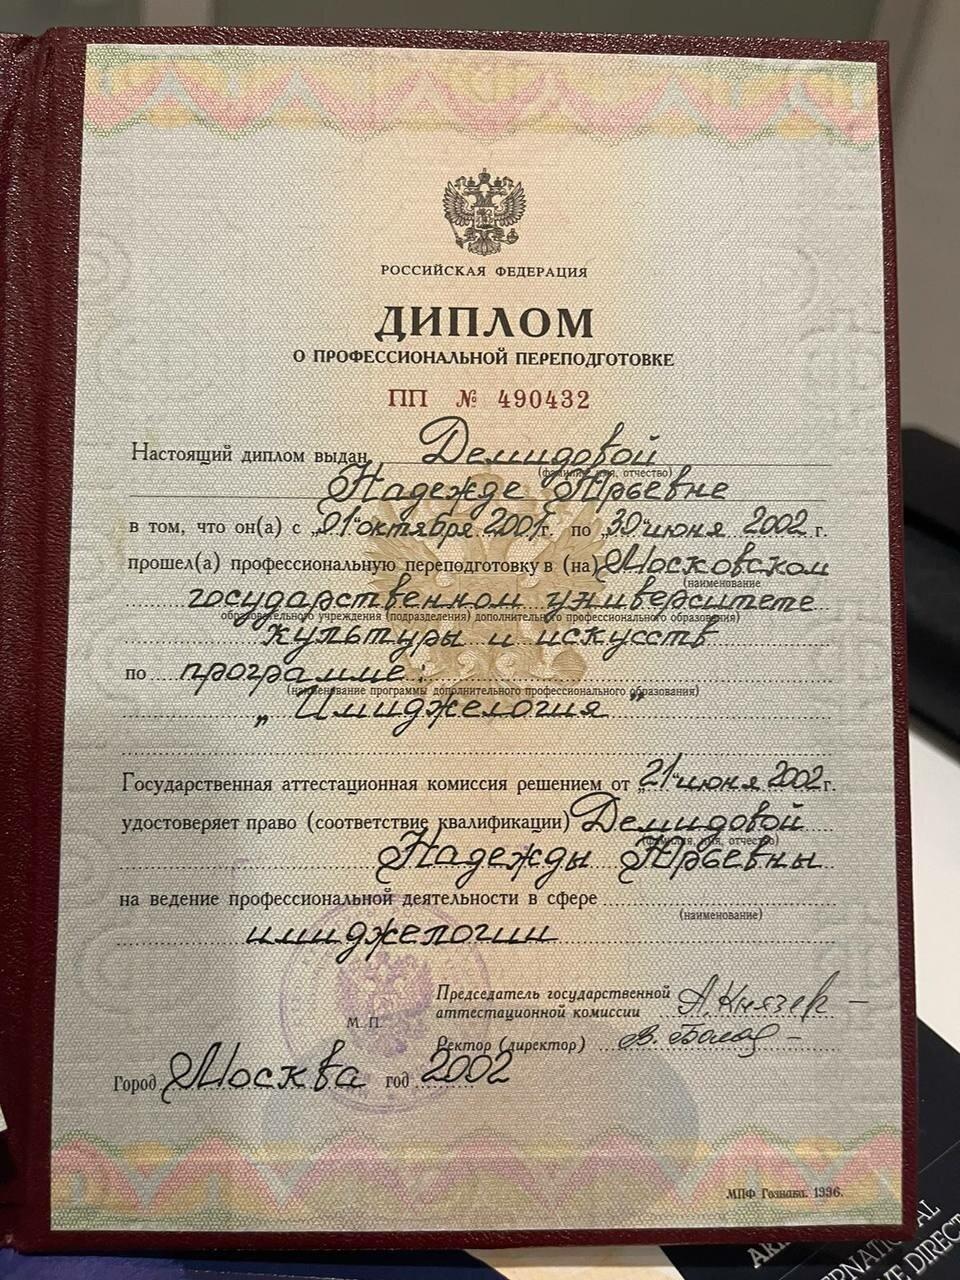 РОССИЙСКАЯ ФЕДЕРАЦИЯ
ДИПЛОМ
О ПРОФЕССИОНАЛЬНОЙ ПЕРЕПОДГОТОВКЕ
ПП № 490432
Настоящий диплом выдан Демидовой
(фамилия, имя, отчество)
Надежде Юрьевне
в том, что он(а) с „01“ октября 2001г. по „30“ июня 2002 г.
прошел(а) профессиональную переподготовку в (на) Московском
(наименование
государственном университете
образовательного учреждения (подразделения) дополнительного профессионального образования)
культуры и искусств
по программе:
(наименование программы дополнительного профессионального образования)
„Имиджелогия“
Государственная аттестационная комиссия решением от „21“ июня 2002г.
удостоверяет право (соответствие квалификации) Демидовой
(фамилия, имя, отчество)
Надежды Юрьевны
на ведение профессиональной деятельности в сфере
(наименование)
имиджелогии
Председатель государственной
аттестационной комиссии
М. П.
Ректор (директор)
Город Москва год 2002
МПФ Гознака. 1996.